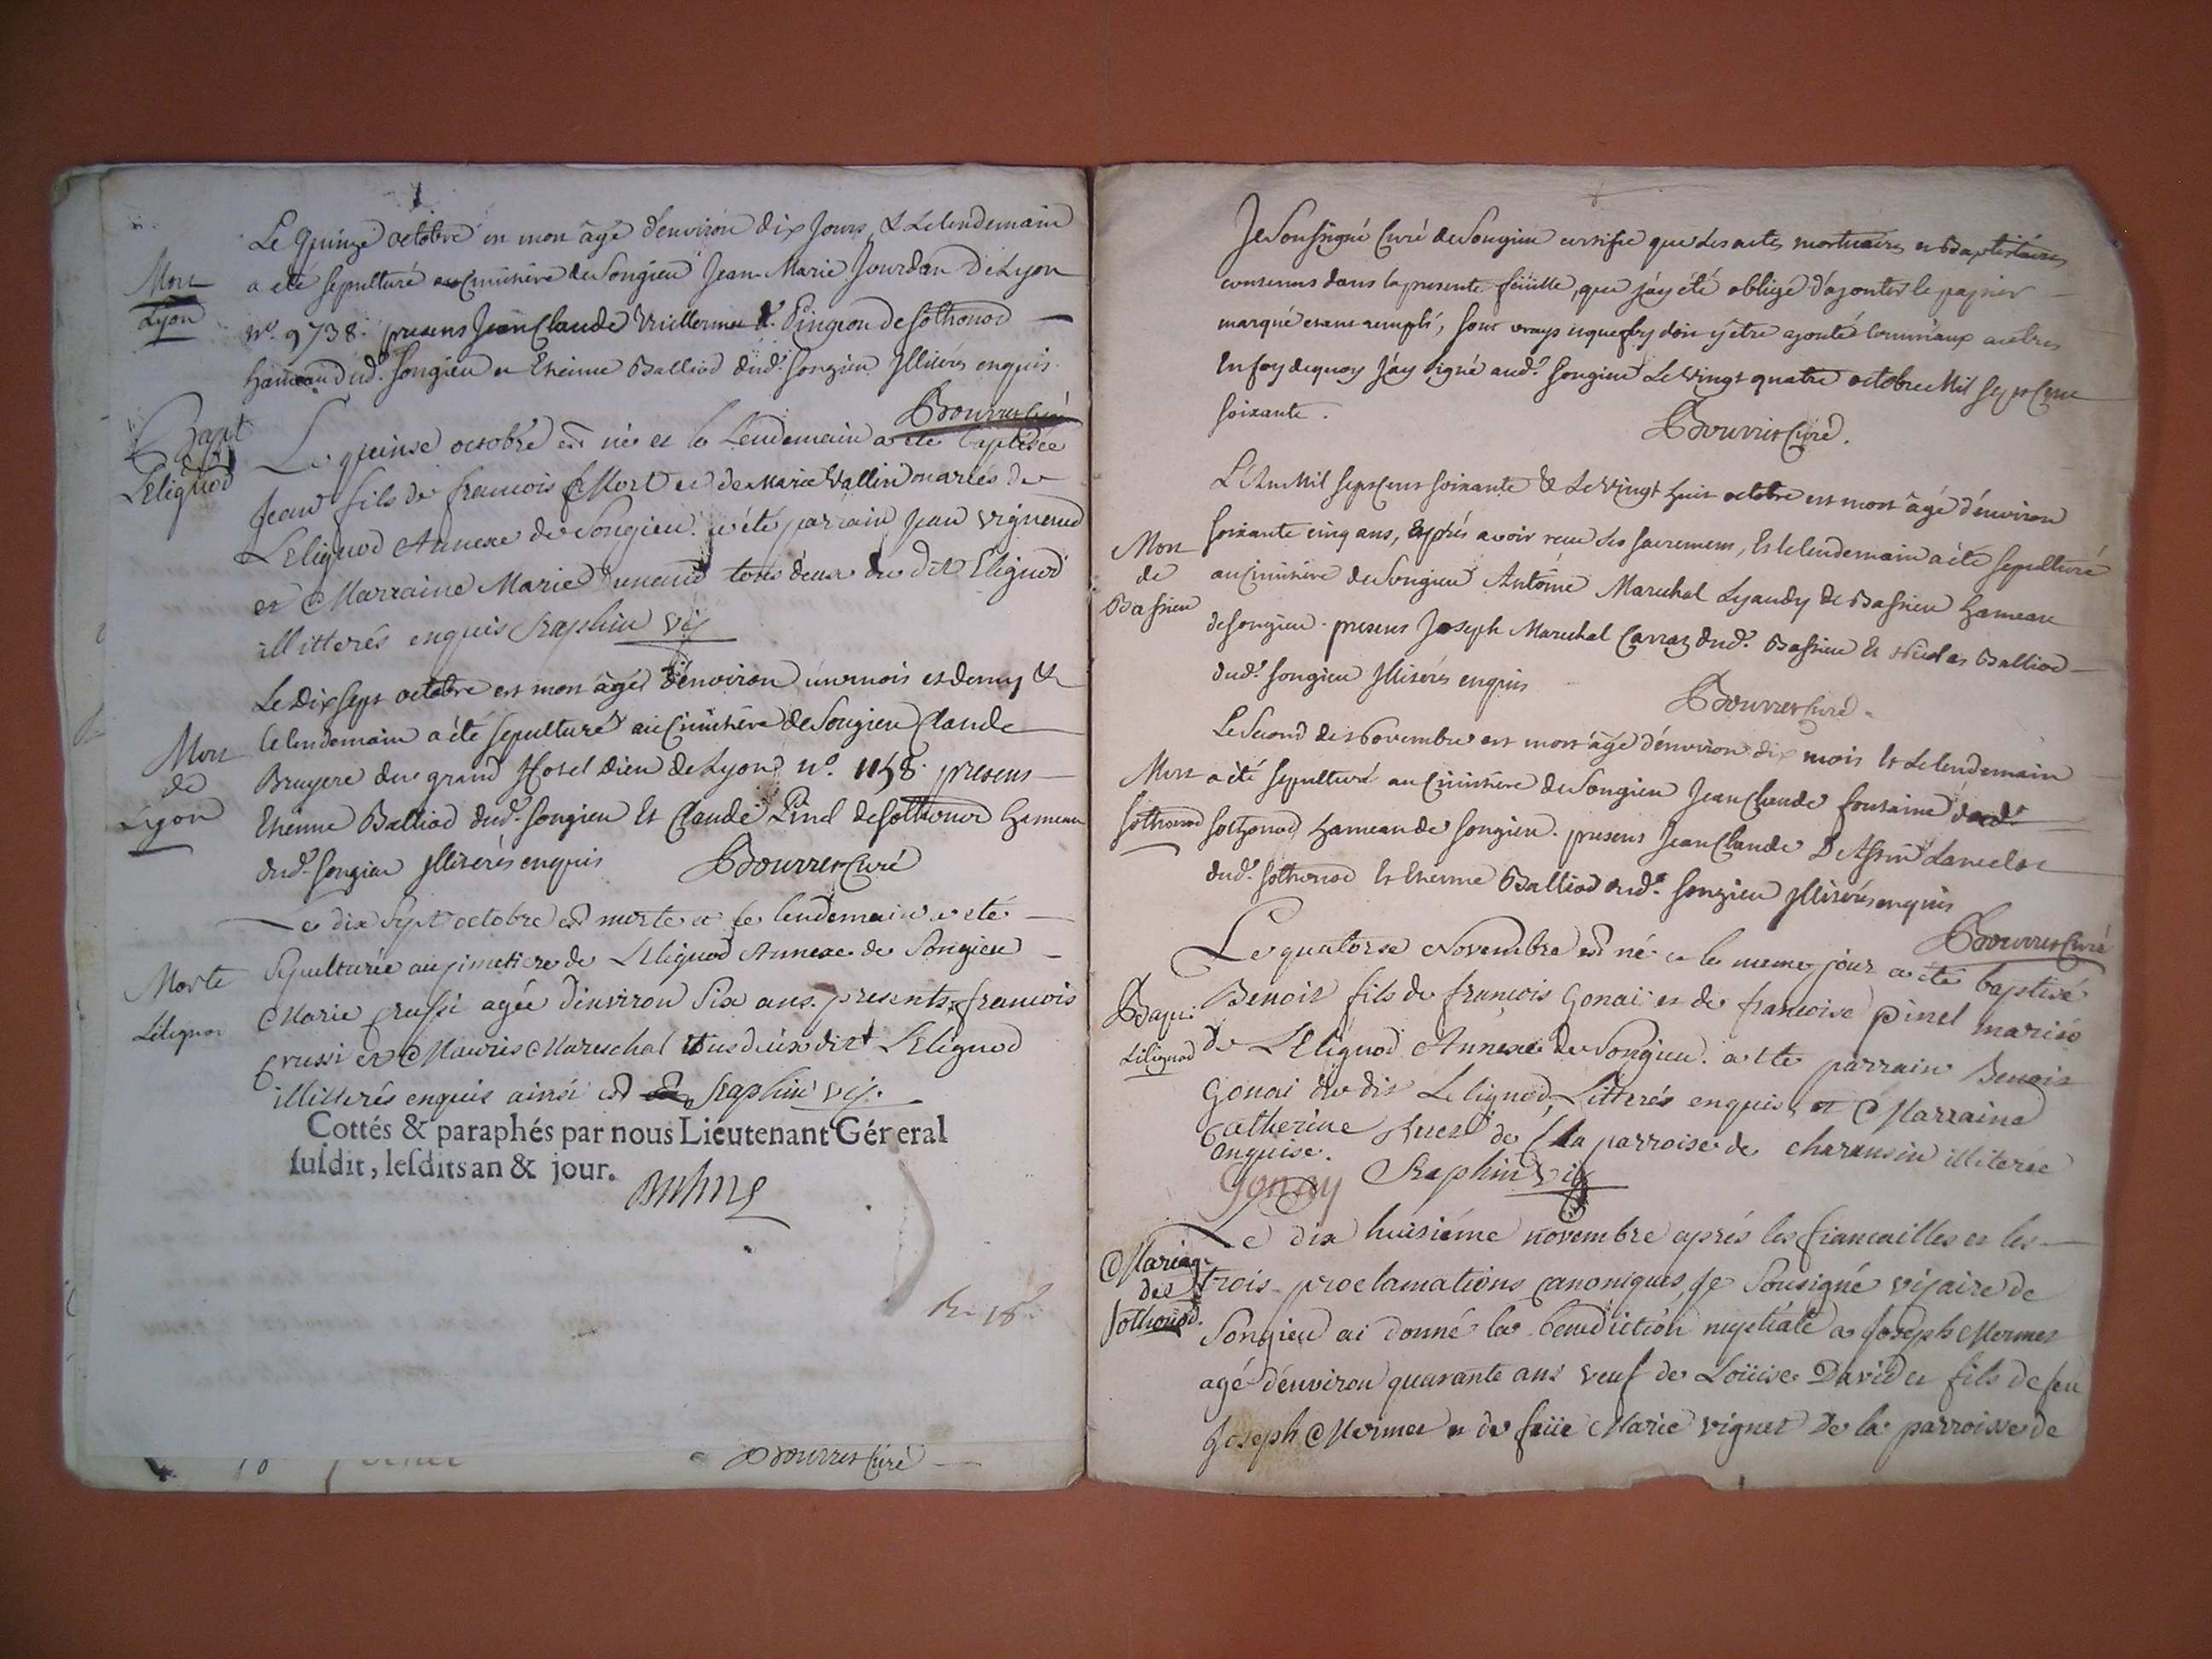 Le quinze octobre est mort âgé d'environ dix Jours & Le lendemain
Mort
Lyon
a eté sepulturé au Cimitière de Songieu Jean-Marie Jourdan De Lyon
n.º 9738. presens Jean Claude Vuillermet d. Pingeon de Sothonod
hameau dud. Songieu et Etienne Balliod dud. Songieu Illiterés enquis.
Bourret Curé
Bapt
Léliguod
Le quinse octobre est né et le Lendemain a été baptisée
Jean fils de francois Mort et de Marie Vallin mariés de
Leliguod Annexe de Songieu. a été parrain jean vignand
et Marraine Marie Dunand tous deux du dit Eliguod
illitterés enquis Sraphin vic
Mort
de
Lyon
Le Dix Sept octobre est mort âgé d'environ un mois et demy &
le lendemain a été sepulturé au Cimitière de Songieu Claude
Bruyere du grand Hotel Dieu de Lyon n.º 1158. presens
Etienne Balliod dud. Songieu Et Claude Pinel de Sothonod hameau
dud. Songieu Illiterés enquis Bourret Curé
Morte
Léliguod
Le dix Sept octobre est morte et le lendemain a eté
Sepulturée au cimetiere de Leliguod Annexe de Songieu
Marie crussi agée d'environ Six ans. presents francois
crussi et Mauris Mareschal tous deux dudit Leliguod
illitterés enquis ainsi est Sraphin vic.
Cottés & paraphés par nous Lieutenant Géréral
susdit, lesdits an & jour.
Bourret Curé
Je Soussigné Curé de Songieu certifie que les actes mortuaires et Baptistaires
contenus dans la presente feüille, que j'ay été obligé d'ajouter le papier
marqué etant rempli, sont vrays et que foy doit y être ajouté comme aux autres
En foy de quoy J'ay signé aud. Songieu Le vingt quatre octobre Mil Sept Cent
soixante.
Bourret Curé.
Mort
de
Bassieu
L'An Mil Sept Cent soixante & Le vingt huit octobre est mort âgé d'environ
soixante cinq ans, après avoir reçu les sacremens, Et le lendemain a été sepulturé
au Cimitière de Songieu Antoine Marechal Lyaudy de Bassieu hameau
de Songieu. presens Joseph Marechal Carraz dud. Bassieu Et Nicolas Balliod
dud. Songieu Illiterés enquis
Bourret Curé
Mort
Sothonod
Le Second de Novembre est mort âgé d'environ dix mois Et Le lendemain
a été sepulturé au Cimitière de Songieu Jean Claude Fontaine dud.
Sothonod hameau de Songieu. presens Jean Claude D'Assin Lancelot
dud. Sothonod Et Etienne Balliod dud. Songieu Illiterés enquis
Bourret Curé
Bapt.
Léliguod
Le quatorse Novembre est né et le meme jour a été baptisé
Benoit fils de françois Gonai et de francoise pinel mariés
de Léliguod Annexe de Songieu. a ete parrain Benoit
Gonai du dit Leliguod, Litterés enquis, et Marraine
Catherine de la parroise de charansin illiteree
enquise.
Gonay Sraphin vic
Mariage
de
Sothonod.
Le dix huisiéme novembre après les fiancailles et les
trois proclamations canoniques, je Sousigné vicaire de
Songieu ai donné la benediction nuptiale a Joseph Mermet
agé d'environ quarante ans veuf de Loüise David et fils de feu
Joseph Mermet et de feüe Marie vignet De la parroisse de